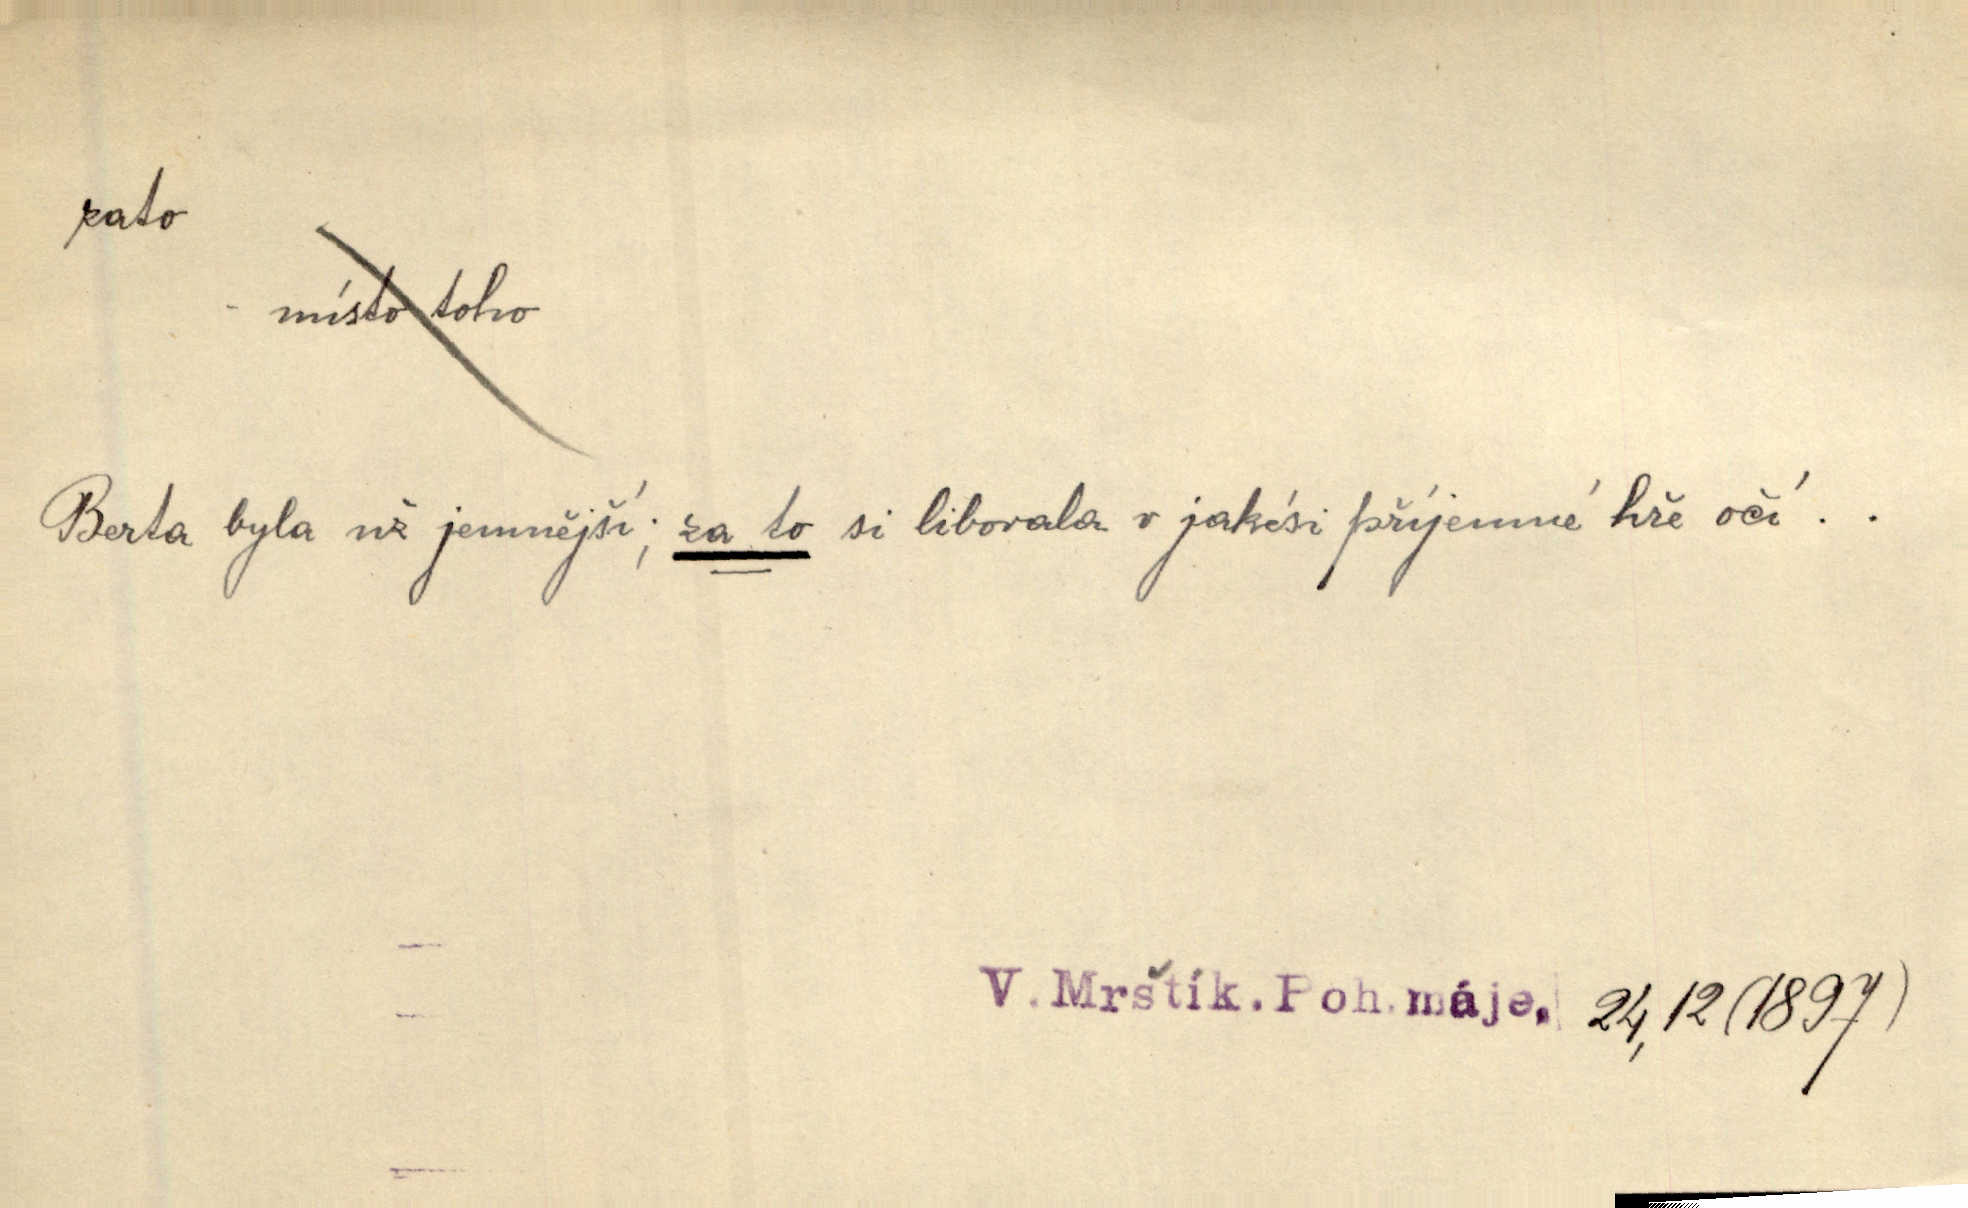 zato
- místo toho
Berta byla už jemnější; za to si libovala v jakési příjemné hře očí . .
V. Mrštík. Poh. máje. 24, 12 (1897)